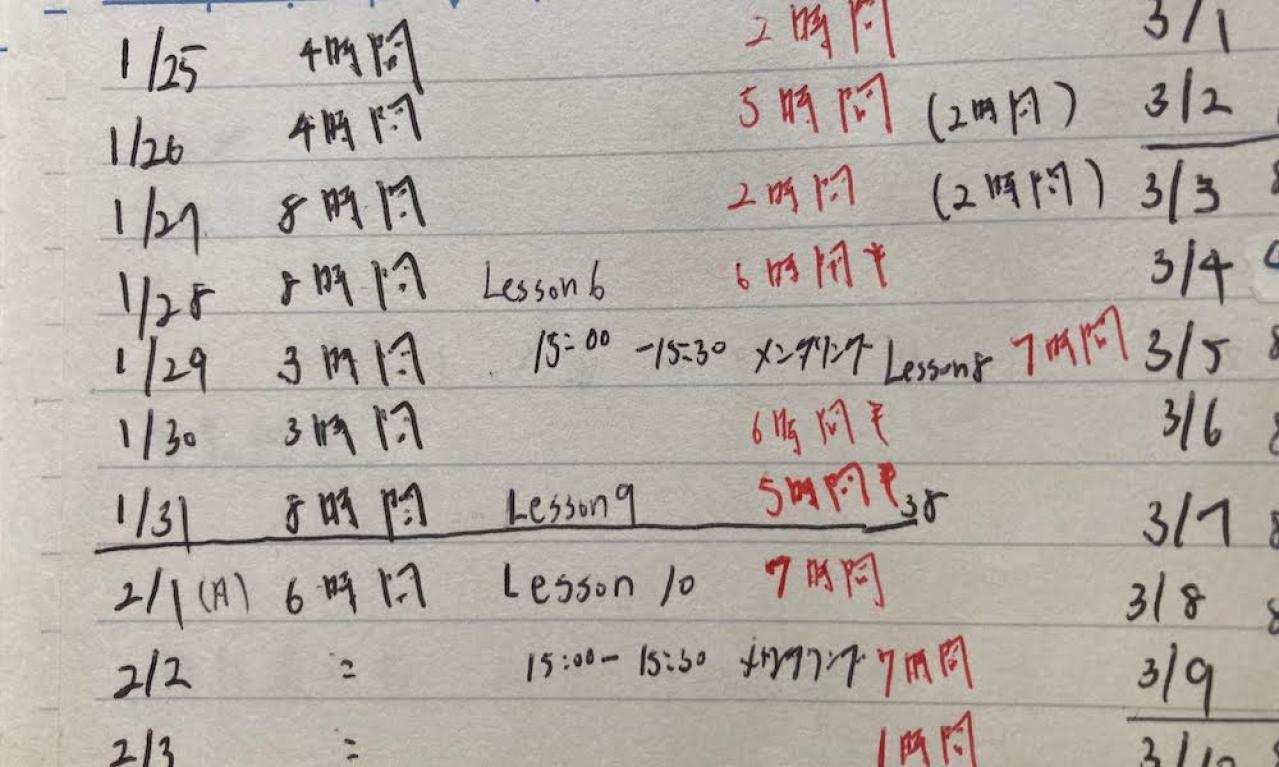 1/25 4時間 2時間 3/1
1/26 4時間 5時間 (2時間) 3/2
1/27 8時間 2時間 (2時間) 3/3
1/28 8時間 Lesson6 6時間半 3/4
1/29 3時間 15:00-15:30 メンタリング Lesson8 7時間 3/5
1/30 3時間 6時間半 3/6
1/31 8時間 Lesson9 5時間半 38 3/7
2/1(月) 6時間 Lesson 10 7時間 3/8
2/2 = 15:00-15:30 メンタリング 7時間 3/9
2/3 = 1時間 3/10